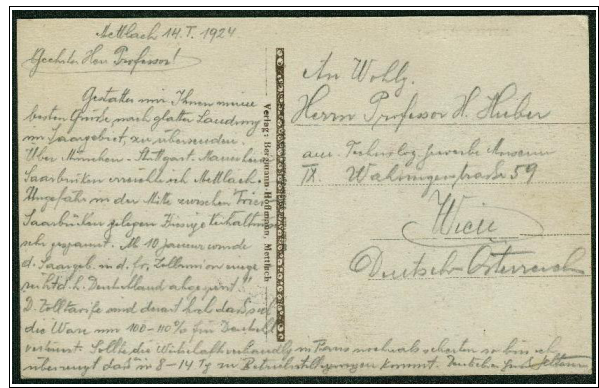 Mettlach 14. I. 1924
Geehrter Herr Professor!
Gestatten mir Ihnen meine
besten Grüsse nach glatter Landung
im Saargebiet, zu übersenden.
Über München - Stuttgart. Mannheim
Saarbrüken erreichte ich Mettlach.
Ungefähr in der Mitte zwischen Trier
Saarbrüken gelegen
sehr gespannt. Ab 10 Januar wurde
d. Saargeb. in d. fr. Zollunion einge
d. h. Deutschland abgesperrt!
D. Zolltarife sind derart hoch dass
die Ware um 100-110% für Deutschl.
verteuert. Sollte die in Paris nochmals scheitern so bin ich
überzeugt das in 8-14 Tg zu kommt.
Verlag: Bergmann-Hoffmann, Mettlach
An Wohlg.
Herrn Professor H. Huber
am Technolog. Gewerbe Museum
IX. Währingerstrasse 59
Wien
Deutsch-Österreich